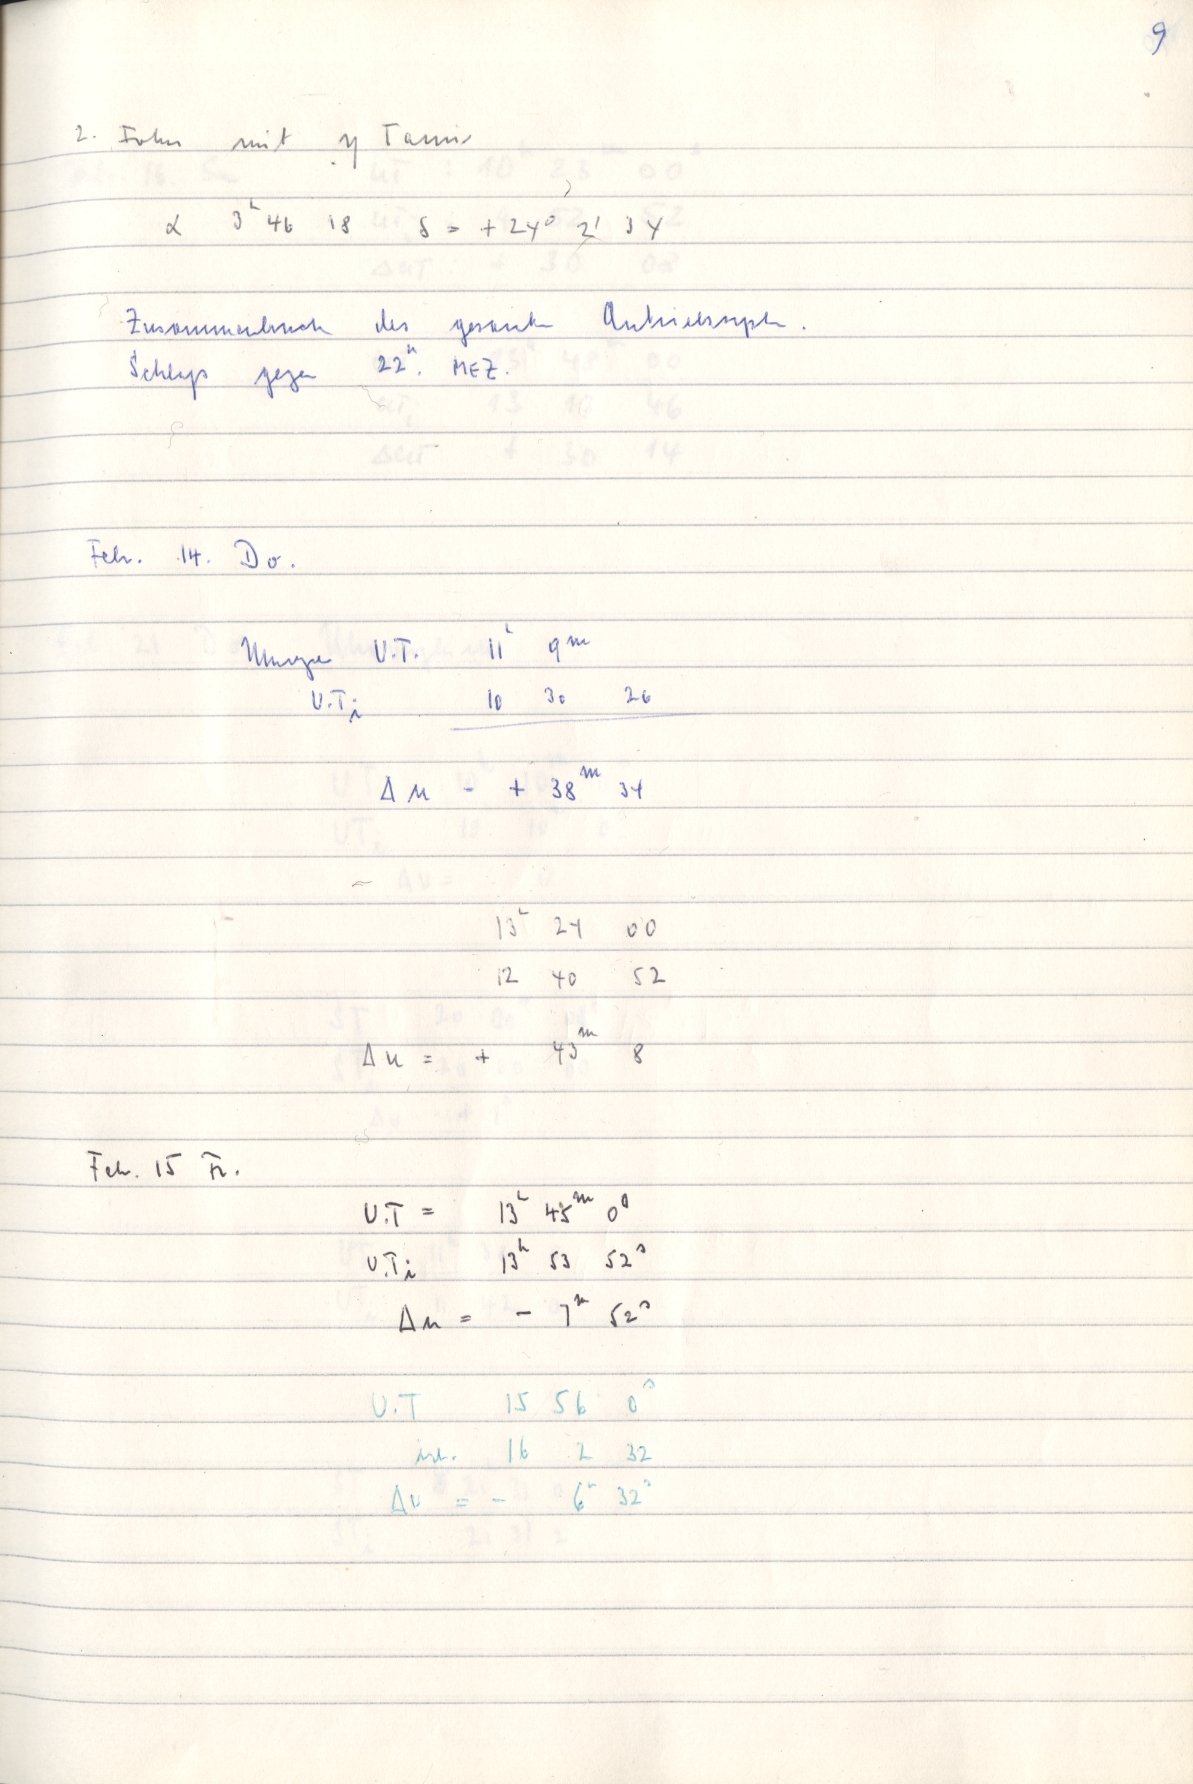 9
2. Fokus mit η Tauri
α 3ʰ 46 18 δ = +24° 2' 34
Zusammenbruch des gesamten Antriebssyst.
Schluss gegen 22ʰ. MEZ.
Feb. 14. Do.
U.T. 11ʰ 9ᵐ
U.T.i 10 30 26
Δu = + 38ᵐ 34
13ʰ 24 00
12 40 52
Δu = + 43ᵐ 8
Feb. 15 Fr.
U.T = 13ʰ 45ᵐ 0ˢ
U.Ti 13ʰ 53 52ˢ
Δu = - 7ᵐ 52ˢ
U.T 15 56 0ˢ
16 2 32
Δu = - 6ᵐ 32ˢ